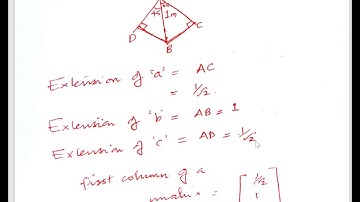 45 60
1m
D C
B
Extension of 'a' = AC
= 1/2.
Extension of 'b' = AB = 1
Extension of 'c' = AD = 1/√2
first column of a
matrix = [ 1/2
1